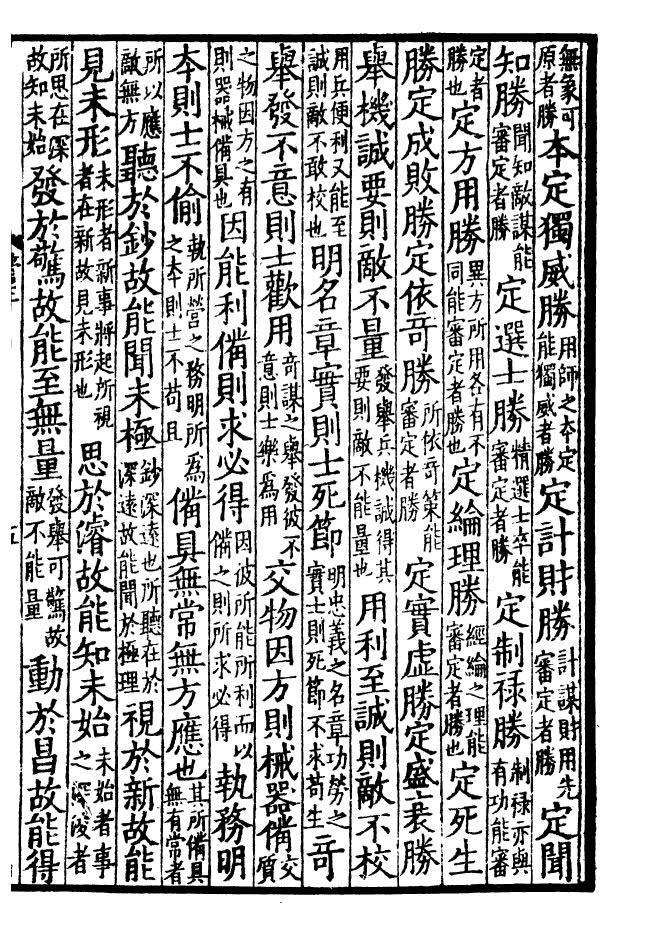 無象可原者勝本定獨威勝用師之本定能獨威者勝定計財勝計謀財用先審定者勝定聞
知勝聞知敵謀能審定者勝定選士勝精選士卒能審定者勝定制祿勝制祿亦與有功能審
定者勝也定方用勝異方所用各有不同能審定者勝也定綸理勝經綸之理能審定者勝也定死生
勝定成敗勝定依竒勝所依竒策能審定者勝定實虛勝定盛衰勝
舉機誠要則敵不量發舉兵機誠得其要則敵不能量也用利至誠則敵不校
用兵便利又能至誠則敵不敢校也明名章實則士死節明忠義之名章功勞之實士則死節不求苟生竒
舉發不意則士歡用竒謀之舉發彼不意則士樂為用交物因方則械器備交質
之物因方之有則器械備具也因能利備則求必得因彼所能所利而以備之則所求必得執務明
本則士不偷執所營之務明所為之本則士不苟且備具無常無方應也其所備具無有常者
所以應敵無方聽於鈔故能聞未極鈔深遠也所聽在於深遠故能聞於極理視於新故能
見未形未形者新事將起所視者在新故見未形也思於濬故能知未始未始者事之深者
所思在深故知未始發於驚故能至無量發舉可驚故敵不能量動於昌故能得